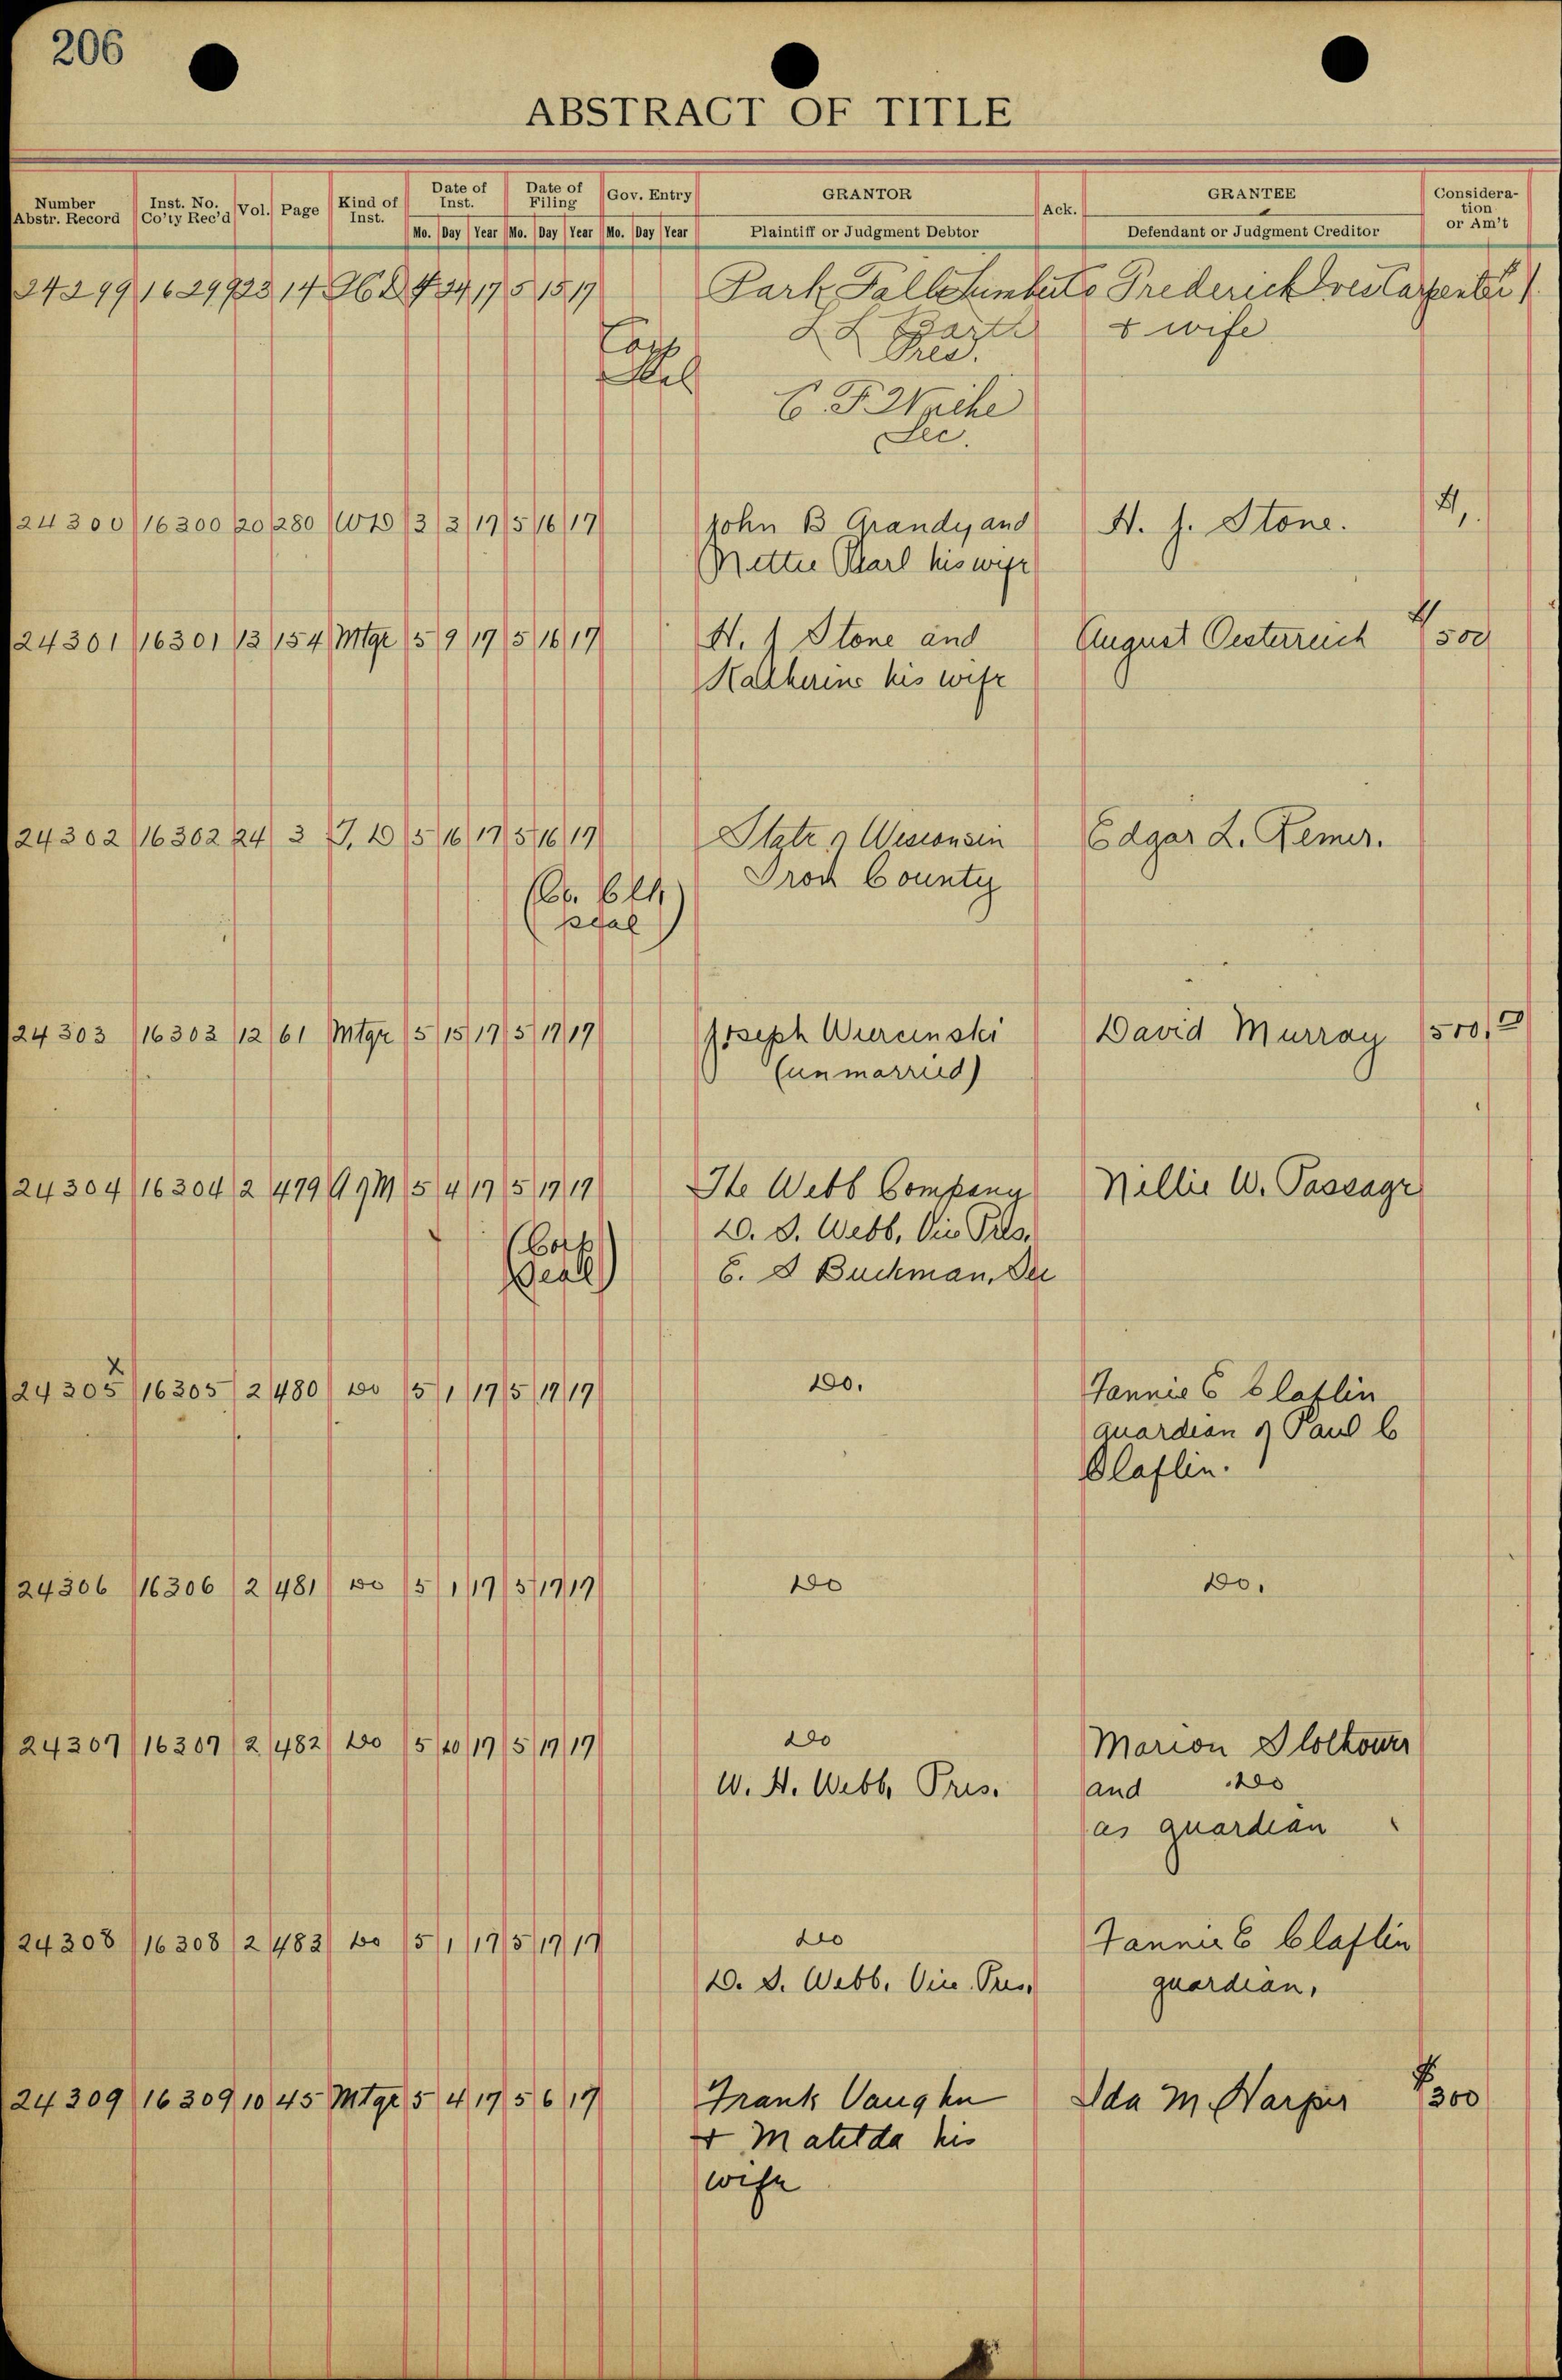 206
ABSTRACT OF TITLE
Number Abstr. Record Inst. No. Co'ty Rec'd Vol. Page Kind of Inst. Date of Inst. Date of Filing Gov. Entry GRANTOR Ack. GRANTEE Consideration or Am't
Mo. Day Year Mo. Day Year Mo. Day Year Plaintiff or Judgment Debtor Defendant or Judgment Creditor
24299 16299 23 14 4 24 17 5 15 17 Park Falls Frederick
Barth & wife
Pres.
Corp
Sel
C. F.
Sec.
24300 16300 20 280 WD 3 3 17 5 16 17 John B Grandy and H. J. Stone. $1,
Nettie Pearl his wife
24301 16301 13 154 Mtge 5 9 17 5 16 17 H. J Stone and August Oesterreich $500
Katherine his wife
24302 16302 24 3 T. D 5 16 17 5 16 17 State of Wisconsin Edgar L. Remer.
Iron County
(Co. Clk
seal)
24303 16303 12 61 Mtge 5 15 17 5 17 17 Joseph Wiercinski David Murray 500,00
(unmarried)
24304 16304 2 479 AgM 5 4 17 5 17 17 The Webb Company Nellie W. Passage
D. S. Webb, Vice Pres.
(Corp
Seal) E. S Buckman, Sec
X
24305 16305 2 480 Do 5 1 17 5 17 17 Do. Fannie C Claflin
guardian of Paul C
Claflin.
24306 16306 2 481 Do 5 1 17 5 17 17 Do Do.
24307 16307 2 482 Do 5 10 17 5 17 17 Do Marion
W. H. Webb, Pres. and Do
as guardian
24308 16308 2 483 Do 5 1 17 5 17 17 Do Fannie C Claflin
D. S. Webb. Vice. Pres. guardian,
24309 16309 10 45 Mtge 5 4 17 5 6 17 Frank Vaughn Ida M. Harper $300
+ Matilda his
wife